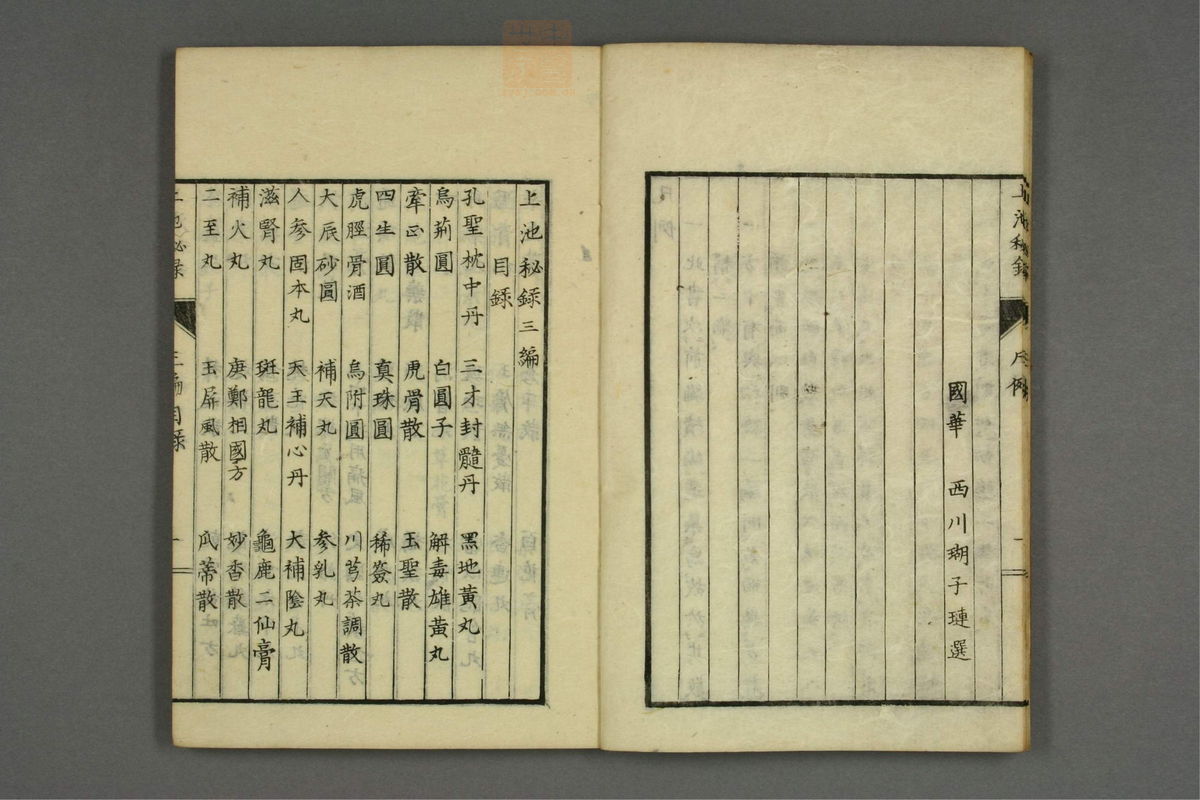 國華 西川瑚子璉選
上池秘錄
凡例
一
上池秘録三編
目録
孔聖枕中丹 三才封髓丹 黑地黃丸
烏荊圓 白圓子 解毒雄黃丸
牽正散 虎骨散 玉聖散
四生圓 真珠圓 稀簽丸
虎脛骨酒 烏附圓 川芎茶調散
大辰砂圓 補天丸 參乳丸
人參固本丸 天王補心丹 大補陰丸
滋腎丸 斑龍丸 龜鹿二仙膏
補火丸 唐鄭相國方 妙香散
二至丸 玉屏風散 瓜蒂散
上池秘录
三編目录
一